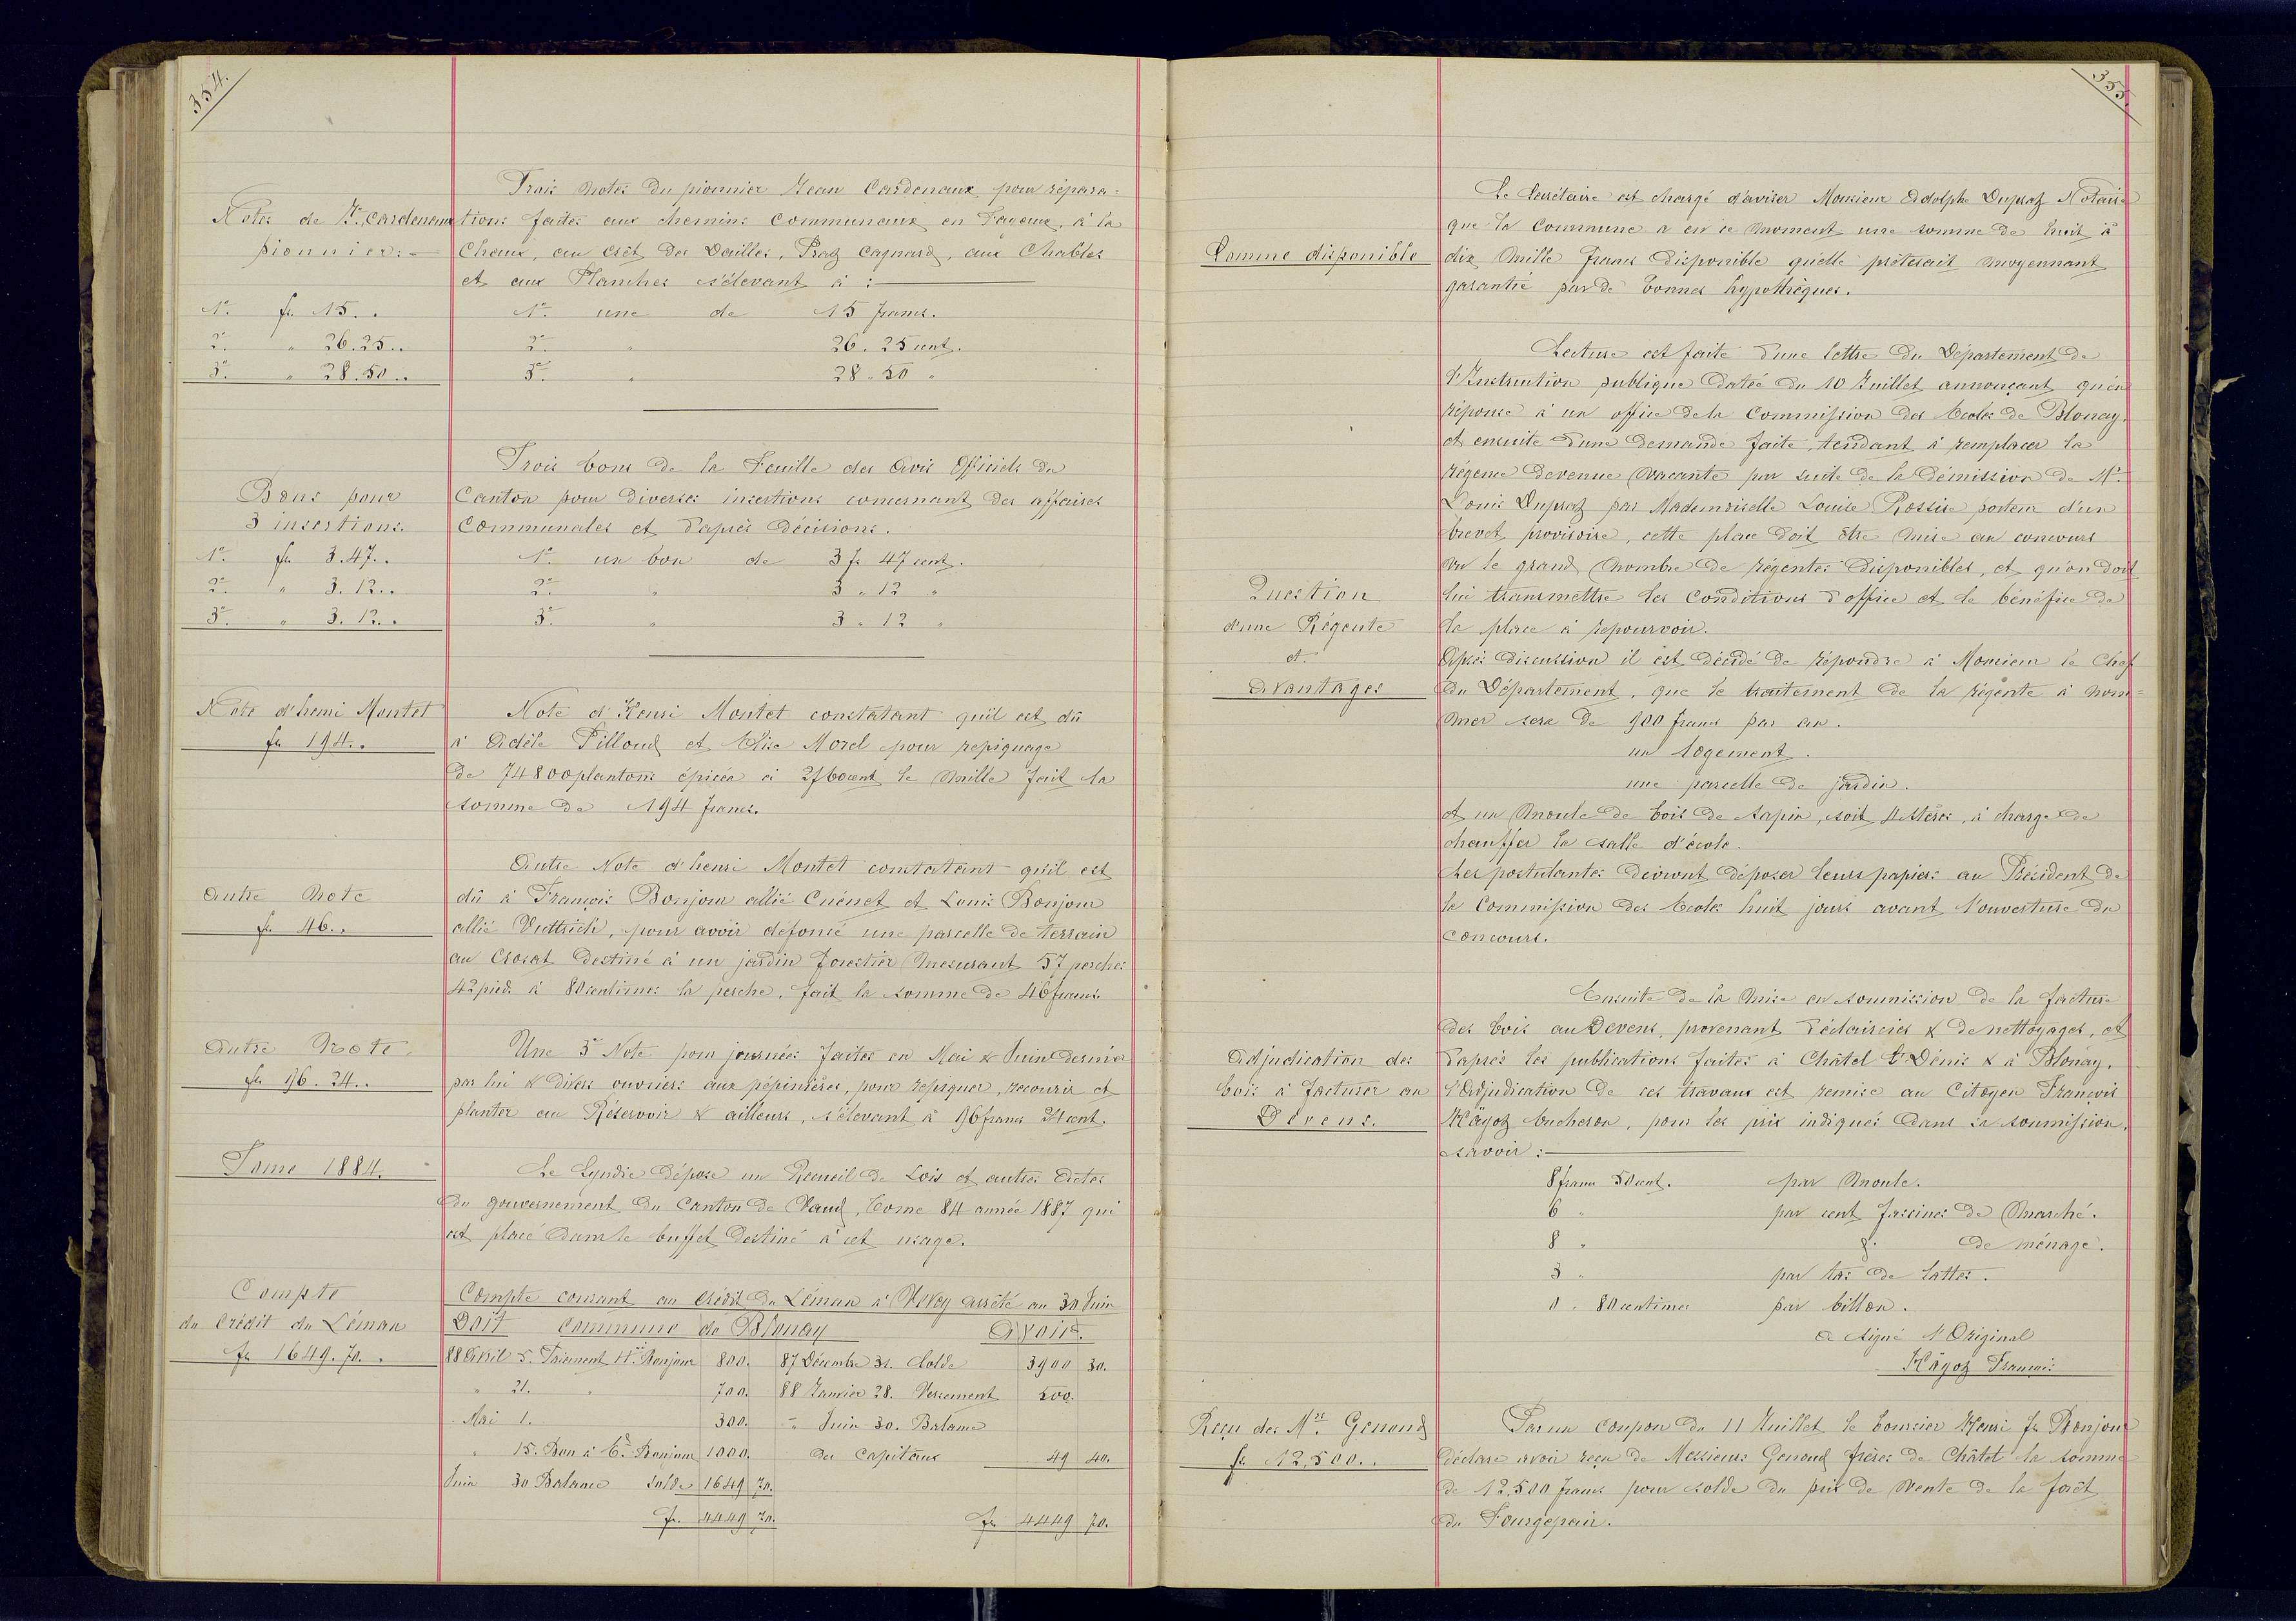 354.
Trois Notes du pionnier Jean Cardenaux pour répara=
Notes de Jn. Cardenaux
tions faites aux chemins Communaux en Fayaux, à la
pionnier:
Chaux, au Crêt des Dailles, Praz Cagnard, aux Chables
et aux Planches s'élevant à :
1º. fr. 15..
1º. une de 15 francs.
2º. " 26.25..
2º. " 26. 25 cent.
3º. " 28.50..
3º. " 28 " 50 "
Trois bons de la Feuille des Avis Officiels du
Bons pour
Canton pour diverses insertions concernant des affaires
3 insertions.
Communales et d'après décisions.
1º. fr. 3.47..
1º. un bon de 3 fr 47 cent.
2º. " 3.12..
2º. " 3 " 12 "
3º. " 3.12..
3º. " 3 " 12 "
Note d'henri Montet
Note d'Henri Montet constatant qu'il est dû
fr. 194..
à Adèle Pilloud et Elise Morel pour repiquage
de 74800 plantons épicéa à 2f 60 cent le mille fait la
somme de 194 francs.
Autre Note d'henri Montet constatant qu'il est
Autre Note
dû à François Bonjour allié Cuénet et Louis Bonjour
fr. 46..
allié Vuttrich, pour avoir défoncé une parcelle de terrain
au Crosat destiné à un jardin forestier mesurant 57 perches
42 pieds à 80 centimes la perche, fait la somme de 46 francs
Autre Note.
Une 3e Note pour journées faites en Mai & Juin dernier
fr. 96.24..
par lui & divers ouvriers aux pépinières, pour repiquer, recourir et
planter au Réservoir & ailleurs, s'élevant à 96 francs 24 cent.
Tome 1884.
Le Syndic dépose un Recueil de Lois et autres Actes
du gouvernement du Canton de Vaud, Tome 84 année 1887 qui
est placé dans le buffet destiné à cet usage.
Compte
Compte courant au Crédit du Léman à Vevey arrêté au 30 Juin
du Crédit du Léman
Doit Commune de Blonay Avoir.
fr 1649.70..
88 Avril 5. Paiement Hri Bonjour 800. 87 Décembre 31. Solde 3900 30.
" 21. " 700. 88 Janvier 28. Versement 500.
" Mai 1. 300. " Juin 30. Balance
" 15. Bon à Ed. Bonjour 1000. des Capitaux 49 40.
Juin 30 Balance Solde 1649 70.
Fr. 4449 70. Fr. 4449 70.
355.
Le Secrétaire est chargé d'aviser Monsieur Adolphe Dupraz Notaire
que la Commune a en ce moment une somme de huit à
Somme disponible
dix mille francs disponible qu'elle prêterait moyennant
garantie par de bonnes hypothèques.
Lecture est faite d'une lettre du Département de
l'Instruction publique datée du 10 Juillet annonçant qu'en
réponse à un office de la Commission des Ecoles de Blonay,
et ensuite d'une demande faite, tendant à remplacer la
régence devenue vacante par suite de la démission de Mr.
Louis Dupraz par Mademoiselle Louise Rossire porteur d'un
brevet provisoire, cette place doit être mise au concours
vu le grand nombre de régentes disponibles, et qu'on doit
Question
lui transmettre les Conditions d'office et le bénéfice de
d'une Régente
la place à repourvoir.
et
Après discussion il est décidé de répondre à Monsieur le Chef
Avantages
du Département, que le traitement de la régente à nom=
mer sera de 900 francs par an.
un logement.
une parcelle de jardin.
et un moule de bois de sapin, soit 4 stères, à charge de
chauffer la salle d'école.
Les postulantes devront déposer leurs papiers au Président de
la Commission des Ecoles huit jours avant l'ouverture du
Concours.
Ensuite de la mise en soumission de la facture
des bois au Devens, provenant d'éclaircies & de nettoyages, et
Adjudication des
d'après les publications faites à Châtel St Denis & à Blonay,
bois à facturer au
l'Adjudication de ces travaux est remise au Citoyen François
Devens.
Hägoz bucheron, pour les prix indiqués dans sa soumission,
savoir :
8 francs 50 cent. par moule.
6 " par cent fascines de marché.
8 " do. de ménage.
3 " par tas de lattes.
0 . 80 centimes par billon.
a signé l'Original
Hägoz François
Reçu des Mrs. Genoud
Par un coupon du 11 Juillet le boursier Henri fs Bonjour
fr. 12,500..
déclare avoir reçu de Messieurs Genoud frères de Châtel la somme
de 12,500 francs pour solde du prix de vente de la forêt
du Fourgepair.